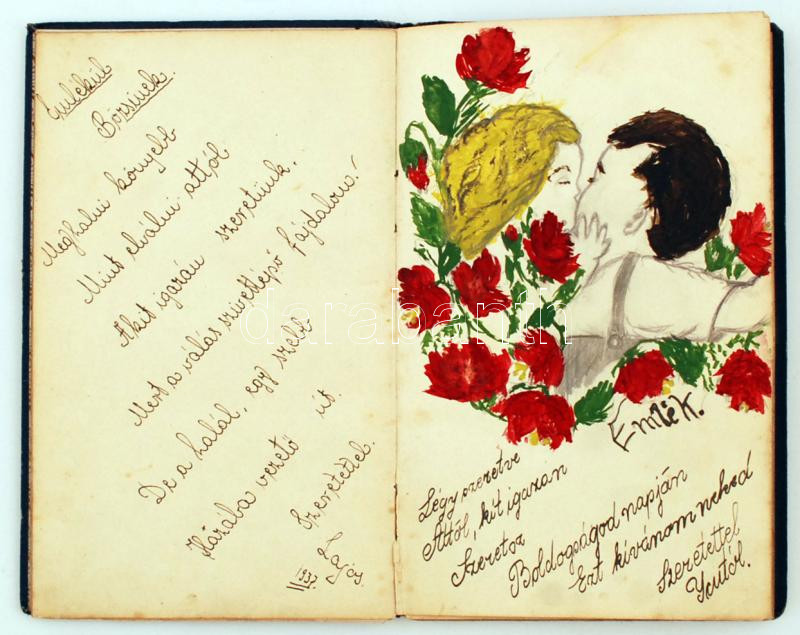 Emlékül
Bözsinek.
Meghalni könyebb
Mint elválni attól
Akit igazán szeretünk.
Mert a válás szivettépő fájdalom!
De a halál, egy szebb
Hazába vezető út.
Szeretettel.
Emlék.
Légy szeretve
Attól, kit igazán
Szeretsz
Boldogságod napján
Ezt kívánom neked
Szeretettel
darabanth